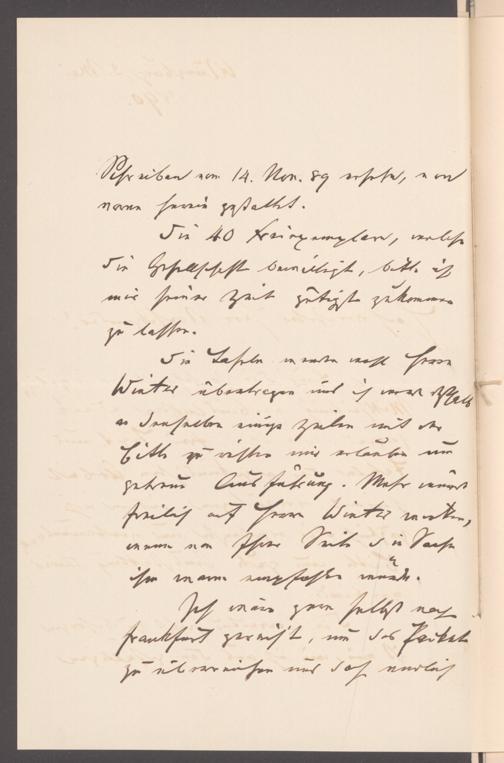 Schreiben vom 14. Nov. 89 ersehen, von
neuem herein gestattet.
Die 40 Freiexemplare, welche
die Gesellschaft bewilligt, bitte ich
mir seiner Zeit gütigst zukommen
zu lassen.
Die Tafeln werden wohl Herrn
Winter übertragen und ich werde deshalb
an denselben einige Zeilen mit der
Bitte zu richten mir erlauben um
getreue Ausführung. Mehr würde
freilich auf Herrn Winter wirken,
wenn von Ihrer Seite die Sache
ihm warm empfohlen würde.
Ich wäre gern selbst nach
Frankfurt gereist, um das Packet
zu überreichen und doch